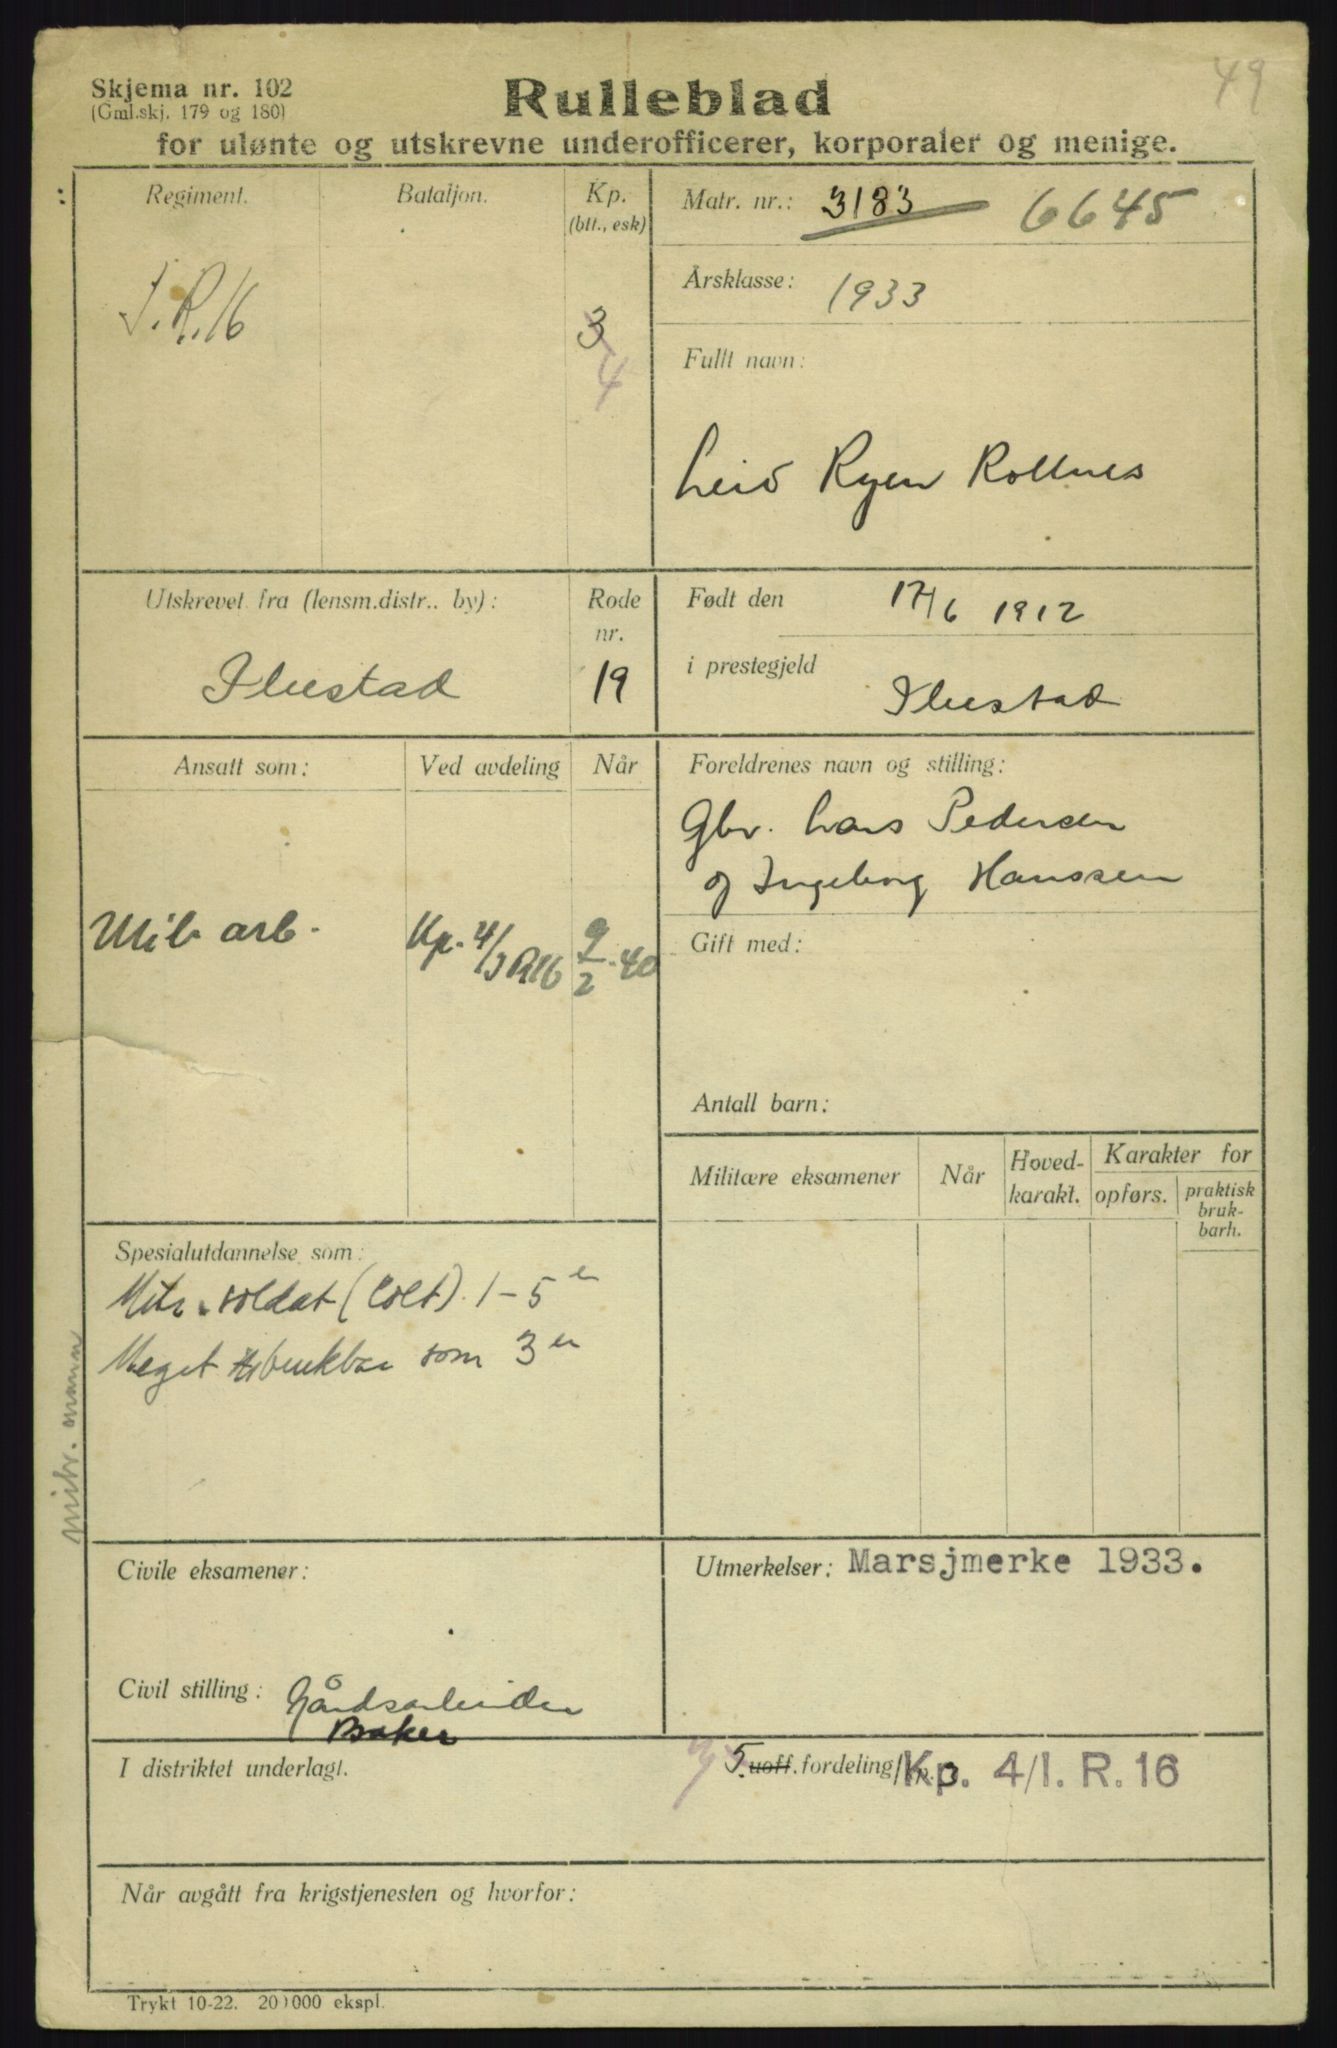 49
Skjema nr. 102
(Gml.skj. 179 og 180)
Rulleblad
for ulønte og utskrevne underofficerer, korporaler og menige.
Regiment.
Bataljon.
Kp.
(btt., esk)
I.R.16
3
4
Matr. nr.: 3183 6645
Årsklasse: 1933
Fullt navn:
Leiv Ryen Rollnes
Utskrevet fra (lensm.distr.. by):
Rode
nr.
Ibestad
19
Født den 17/6 1912
i prestegjeld Ibestad
Ansatt som:
Ved avdeling
Når
Mitr. arb.
Kp. 4/IR16
9/2.40
Foreldrenes navn og stilling:
Gbr. Lars Pedersen
og Ingeborg Hanssen
Gift med:
Antall barn:
Militære eksamener
Når
Hoved-
karakt.
Karakter for
opførs.
praktisk
bruk-
barh.
Spesialutdannelse som:
Mitr. soldat (Colt). 1-5er
Meget brukbar som 3er
mitr. mann
Civile eksamener:
Civil stilling: Gårdsarbeider
Baker
Utmerkelser: Marsjmerke 1933.
I distriktet underlagt.
5. uoff. fordeling Kp. 4/I. R. 16
Når avgått fra krigstjenesten og hvorfor:
Trykt 10-22. 20 000 ekspl.